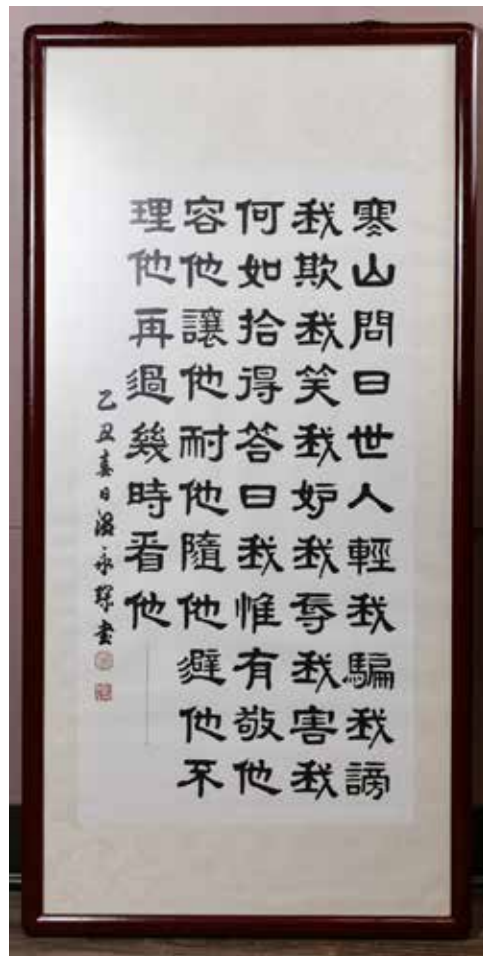 寒山問曰世人輕我騙我謗
我欺我笑我妒我辱我害我
何如拾得答曰我惟有敬他
容他讓他耐他隨他避他不
理他再過幾時看他
乙丑春日溫永琛書